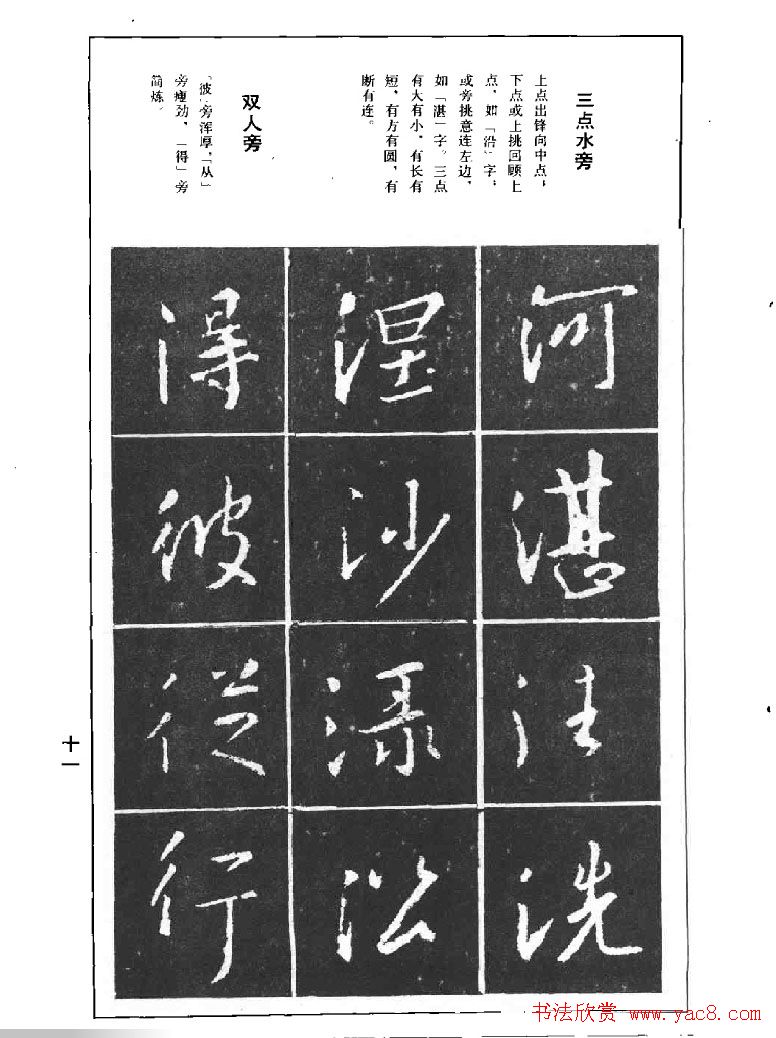 三点水旁
上点出锋向中点，
下点或上挑回顾上
点，如「沿」字，
或旁挑意连左边，
如「湛」字。三点
有大有小，有长有
短，有方有圆，有
断有连。
双人旁
「彼」旁浑厚，「从」
旁瘦劲，「得」旁
简炼。
河
湛
法
洗
涅
沙
漯
沿
得
彼
從
行
十一
书法欣赏 www.yac8.com